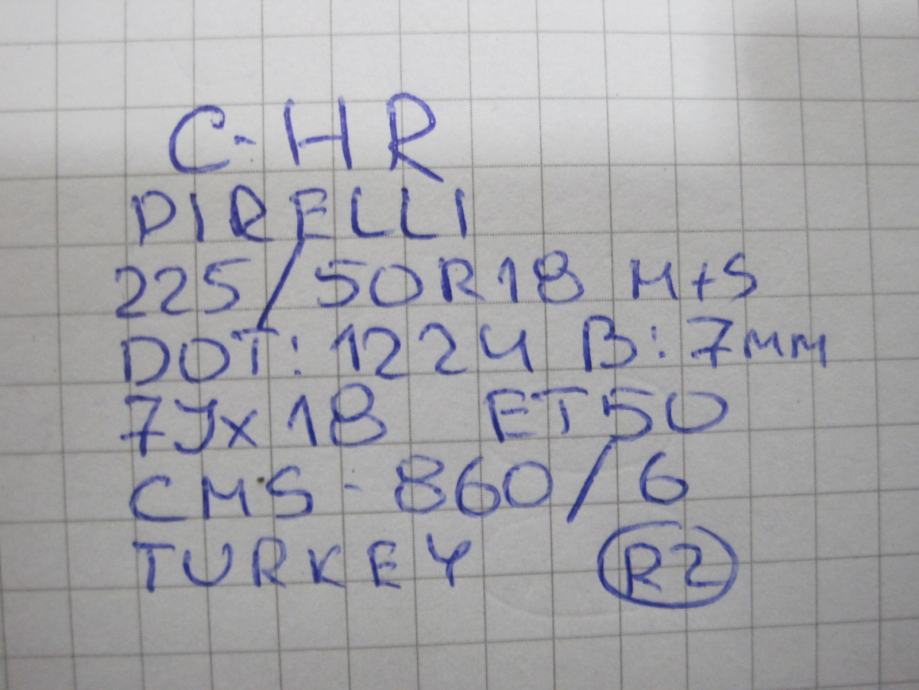 C-HR
PIRELLI
225/50R18 M+S
DOT: 1224 B: 7mm
7Jx18 ET50
CMS - 860/6
TURKEY R2